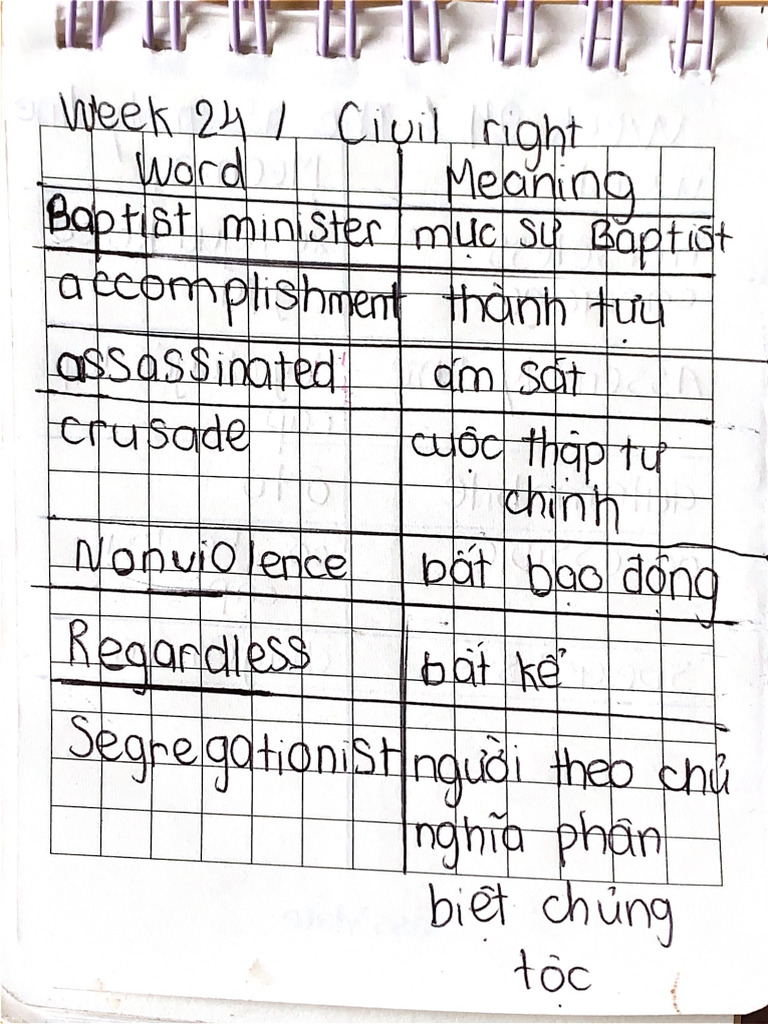 Week 24 / Civil right
Word Meaning
Baptist minister mục sư Baptist
accomplishment thành tựu
assassinated ám sát
crusade cuộc thập tự
chinh
Nonviolence bất bạo động
Regardless bất kể
Segregationist người theo chủ
nghĩa phân
biệt chủng
tộc